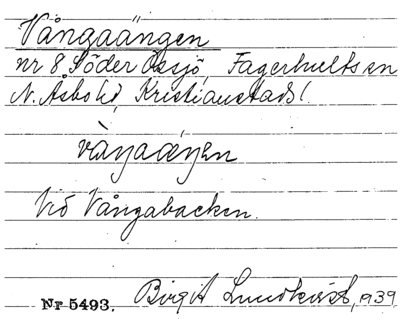 Vångaängen
nr 8 Söder Össjö, Fagerhults sn
N. Åsbo hd, Kristianstads l.
Vid Vångabacken.
Nr 5493. Birgit Lundkvist, 1939